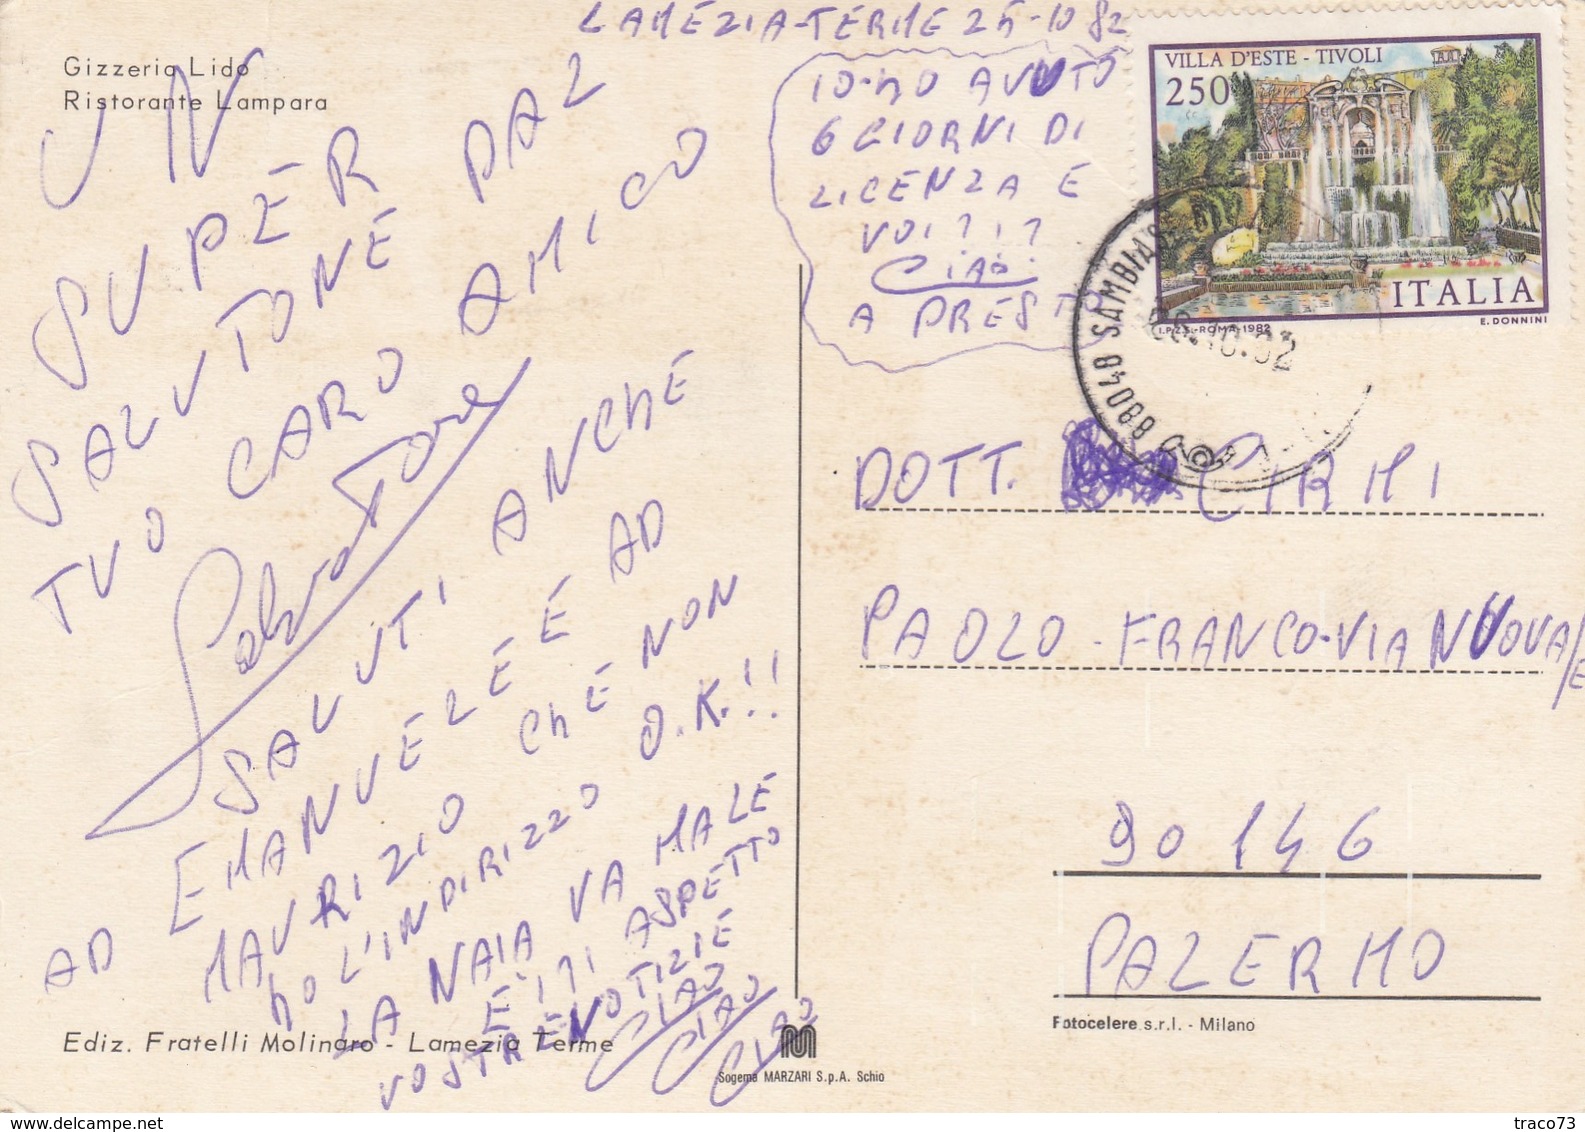 LAMEZIA-TERME 25-10 82
Gizzeria Lido
Ristorante Lampara
UN
SUPER
SALUTONE DAL
TUO CARO AMICO
Salvatore
SALUTI ANCHE
AD EMANUELE E AD
MAURIZIO CHE NON
hO L'INDIRIZZO O.K.!!
LA NAIA VA MALE
E VI ASPETTO
VOSTRE NOTIZIE
CIAO
CIAO
CIAO
Ediz. Fratelli Molinaro - Lamezia Terme
IO hO AVUTO
6 GIORNI DI
LICENZA E
VOI?!?
CIAO
A PRESTO
VILLA D'ESTE - TIVOLI
250
ITALIA
I.P.Z.S.-ROMA-1982
E. DONNINI
88048 SAMBIASE
10.82
DOTT. CIRMI
PAOLO-FRANCO-VIA NUOVA/E
90146
PALERMO
Fotocelere s.r.l. - Milano
Sogema MARZARI S.p.A. Schio
www.delcampe.net
traco73